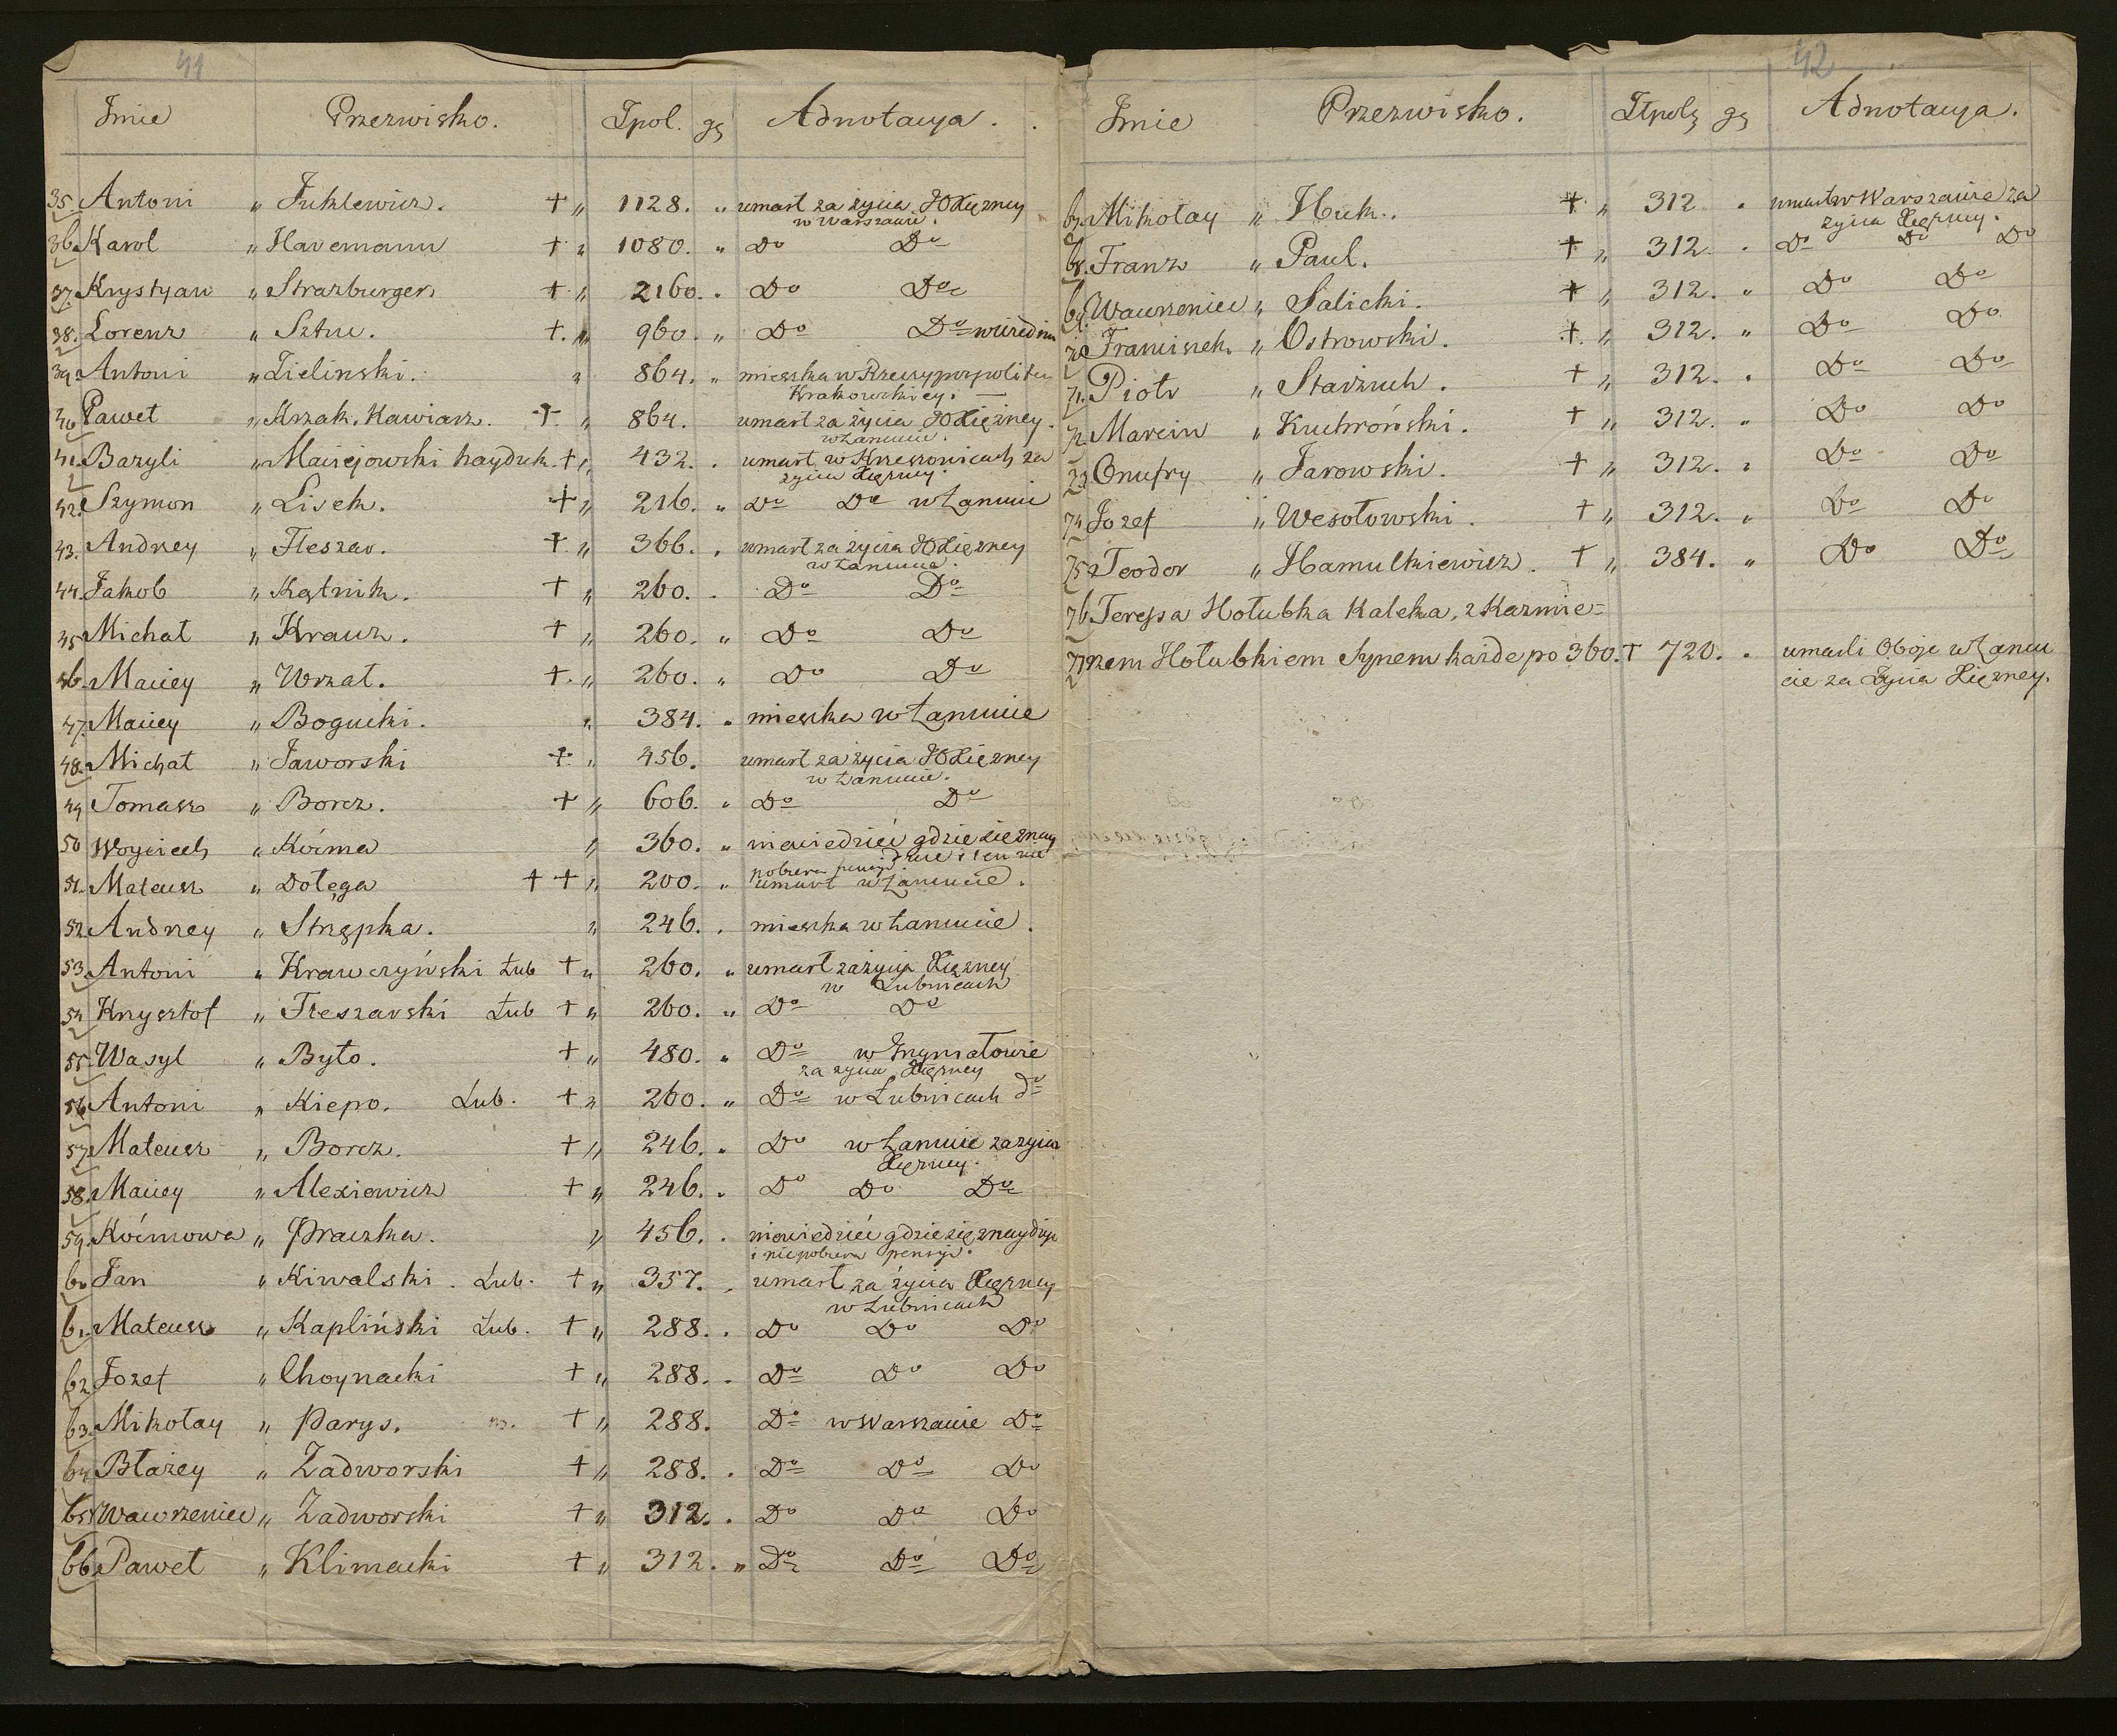 41
Imie Przezwisko. Zpol. gs Adnotacya.
35. Antoni „ Juhlewicz. + „ 1128. „ umarł za życia JOXiężney
w Warszawie.
36. Karol „ Havemann + „ 1080. „ Do Do
37. Krystyan „ Strazburger + „ 2160. „ Do Do
38. Lorenz „ Sztu. +. „ 960. „ Do Do w Wiedniu
39. Antoni „ Zielinski. „ 864. „ mieszka w Rzeczypospolitey
Krakowskiey.
40 Paweł „ Krzak. Kawiarz. + „ 864. umarł za życia JOXiężney.
w Łancucie.
41. Bazyli „ Maciejowski hayduk. + „ 432. „ umarł w Krzeszowicach za
życia Xiężney.
42. Szymon „ Lisek. + „ 216. „ Do Do w Łancucie
43. Andrzey „ Fleszar. + „ 366. „ umarł za życia JOXiężney
w Łancucie.
44. Jakob „ Kątnik. + „ 260. „ Do Do
45 Michał „ Krauz. + „ 260. „ Do Do
46. Maciey „ Wrzat. +. „ 260. „ Do Do
47. Maciey „ Bogucki. „ 384. „ mieszka w Łancucie
48. Michał „ Jaworski + „ 456. umarł za życia JOXiężney
w Łancucie.
49 Tomasz „ Borcz. + „ 606. „ Do Do
50 Woyciech „ Koźma „ 360. „ niewiedzieć gdzie się znay
duie i ten nie
pobiera pensyi
51. Mateusz „ Dołęga + + „ 200. „ umarł w Łancucie.
52. Andrzey „ Strzępka. „ 246. „ mieszka w Łancucie.
53. Antoni „ Krawczyński Łub + „ 260. „ umarł za życia Xiężney
w Łubnicach
54 Krzysztof „ Fleszarski Łub + „ 260. „ Do Do
55. Wasyl „ Było. + „ 480. „ Do w Grymałowie
za życia Xiężney
56 Antoni „ Kiepo. Łub. + „ 260. „ Do w Łubnicach do
57. Mateusz „ Borcz. + „ 246. „ Do w Łancucie za życia
Xiężney.
58. Maciey „ Alexiewicz + „ 246. „ Do Do Do
59. Koźmowa „ Praczka. „ 456. „ niewiedzieć gdzie się znayduje
i niepobiera pensyi.
60 Jan „ Kiwalski. Łub. + „ 357. „ umarł za życia Xiężney
w Łubnicach
61. Mateusz „ Kapliński Łub. + „ 288. „ Do Do Do
62 Jozef „ Choynacki + „ 288. „ Do Do Do
63. Mikołay „ Parys. + „ 288. Do w Warszawie Do
64 Błażey „ Zadworski + „ 288. „ Do Do Do
65 Wawrzeniec „ Zadworski + „ 312. „ Do Do Do
66. Paweł „ Klimacki + „ 312. „ Do Do Do
42
Imie Przezwisko. Złpolz gs Adnotacya.
67. Mikołay „ Huk. + „ 312 „ umarł w Warszawie za
życia Xiężney.
68. Franz „ Paul. + „ 312. „ Do Do Do
69. Wawrzeniec „ Salicki. + „ 312. „ Do Do
70 Franciszek „ Ostrowski. +. „ 312. „ Do Do
71. Piotr „ Starzuch. + „ 312. „ Do Do
72. Marcin „ Kuchroński. + „ 312. „ Do Do
73. Onufry „ Jarowski. + „ 312. „ Do Do
74 Jozef „ Wesołowski. + „ 312. „ Do Do
75 Teodor „ Hamulkiewicz. + „ 384. „ Do Do
76 Teressa Hołubka Kaleka, z Kazmie=
77 rzem Hołubkiem Synem każde po 360. + 720. „ umarli Oboje w Łancu
cie za Życia Xiężney.